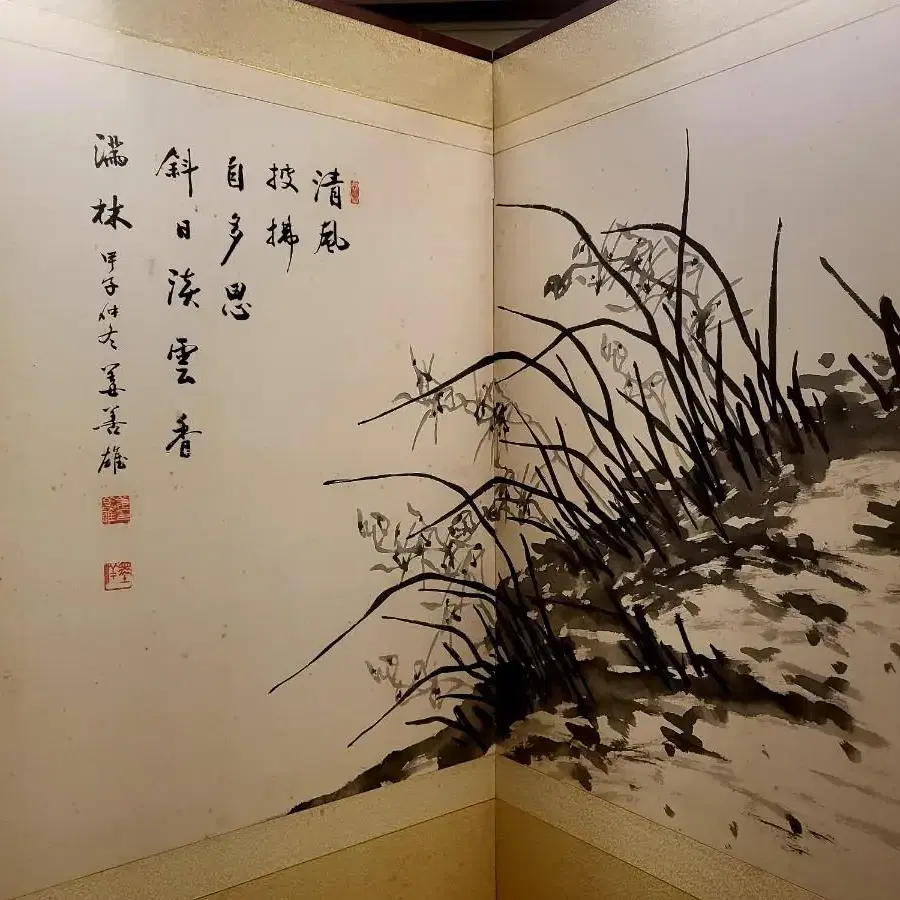 清風
披拂
自多思
斜日淡雲香
滿林 甲子仲冬 姜善雄